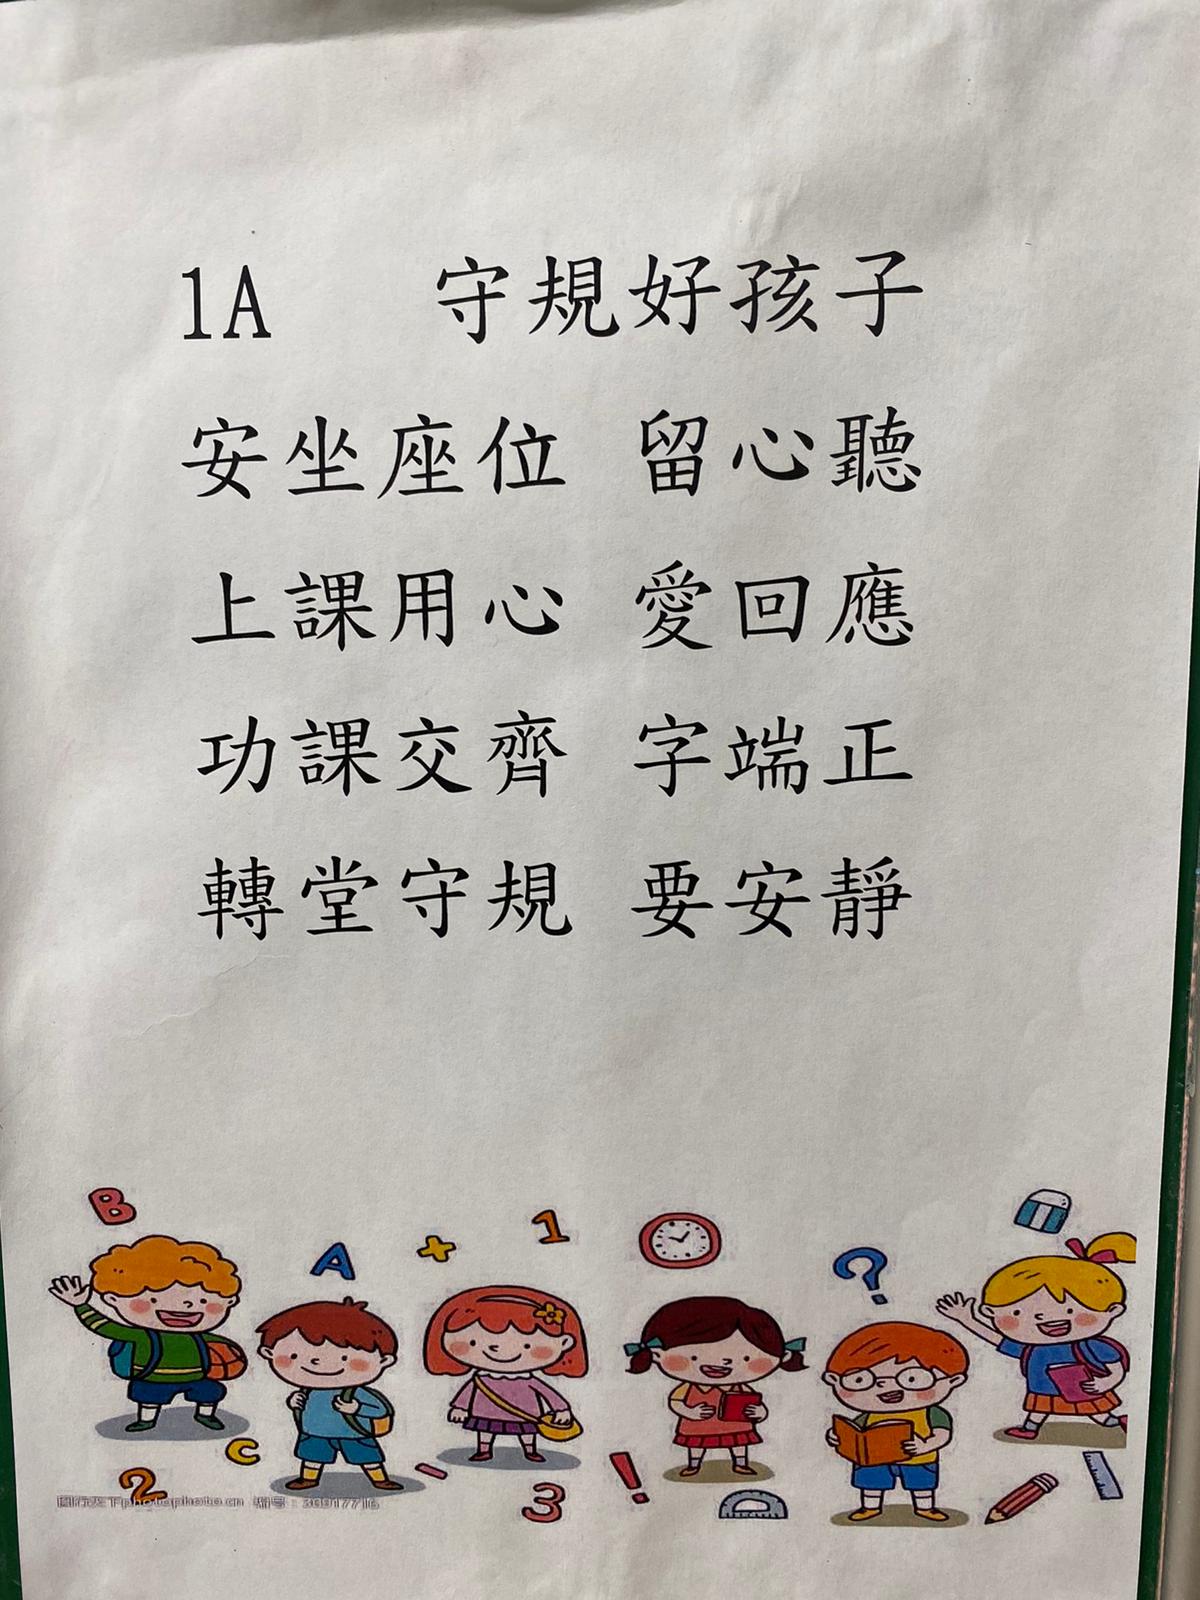 1A 守規好孩子
安坐座位 留心聽
上課用心 愛回應
功課交齊 字端正
轉堂守規 要安靜
B
A
+
1
?
C
2
-
3
!
photophoto.cn